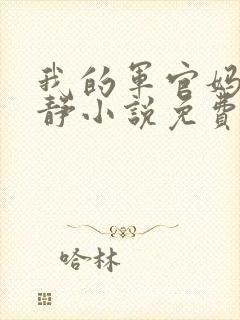 我的軍官媽
靜小說免費
哈林